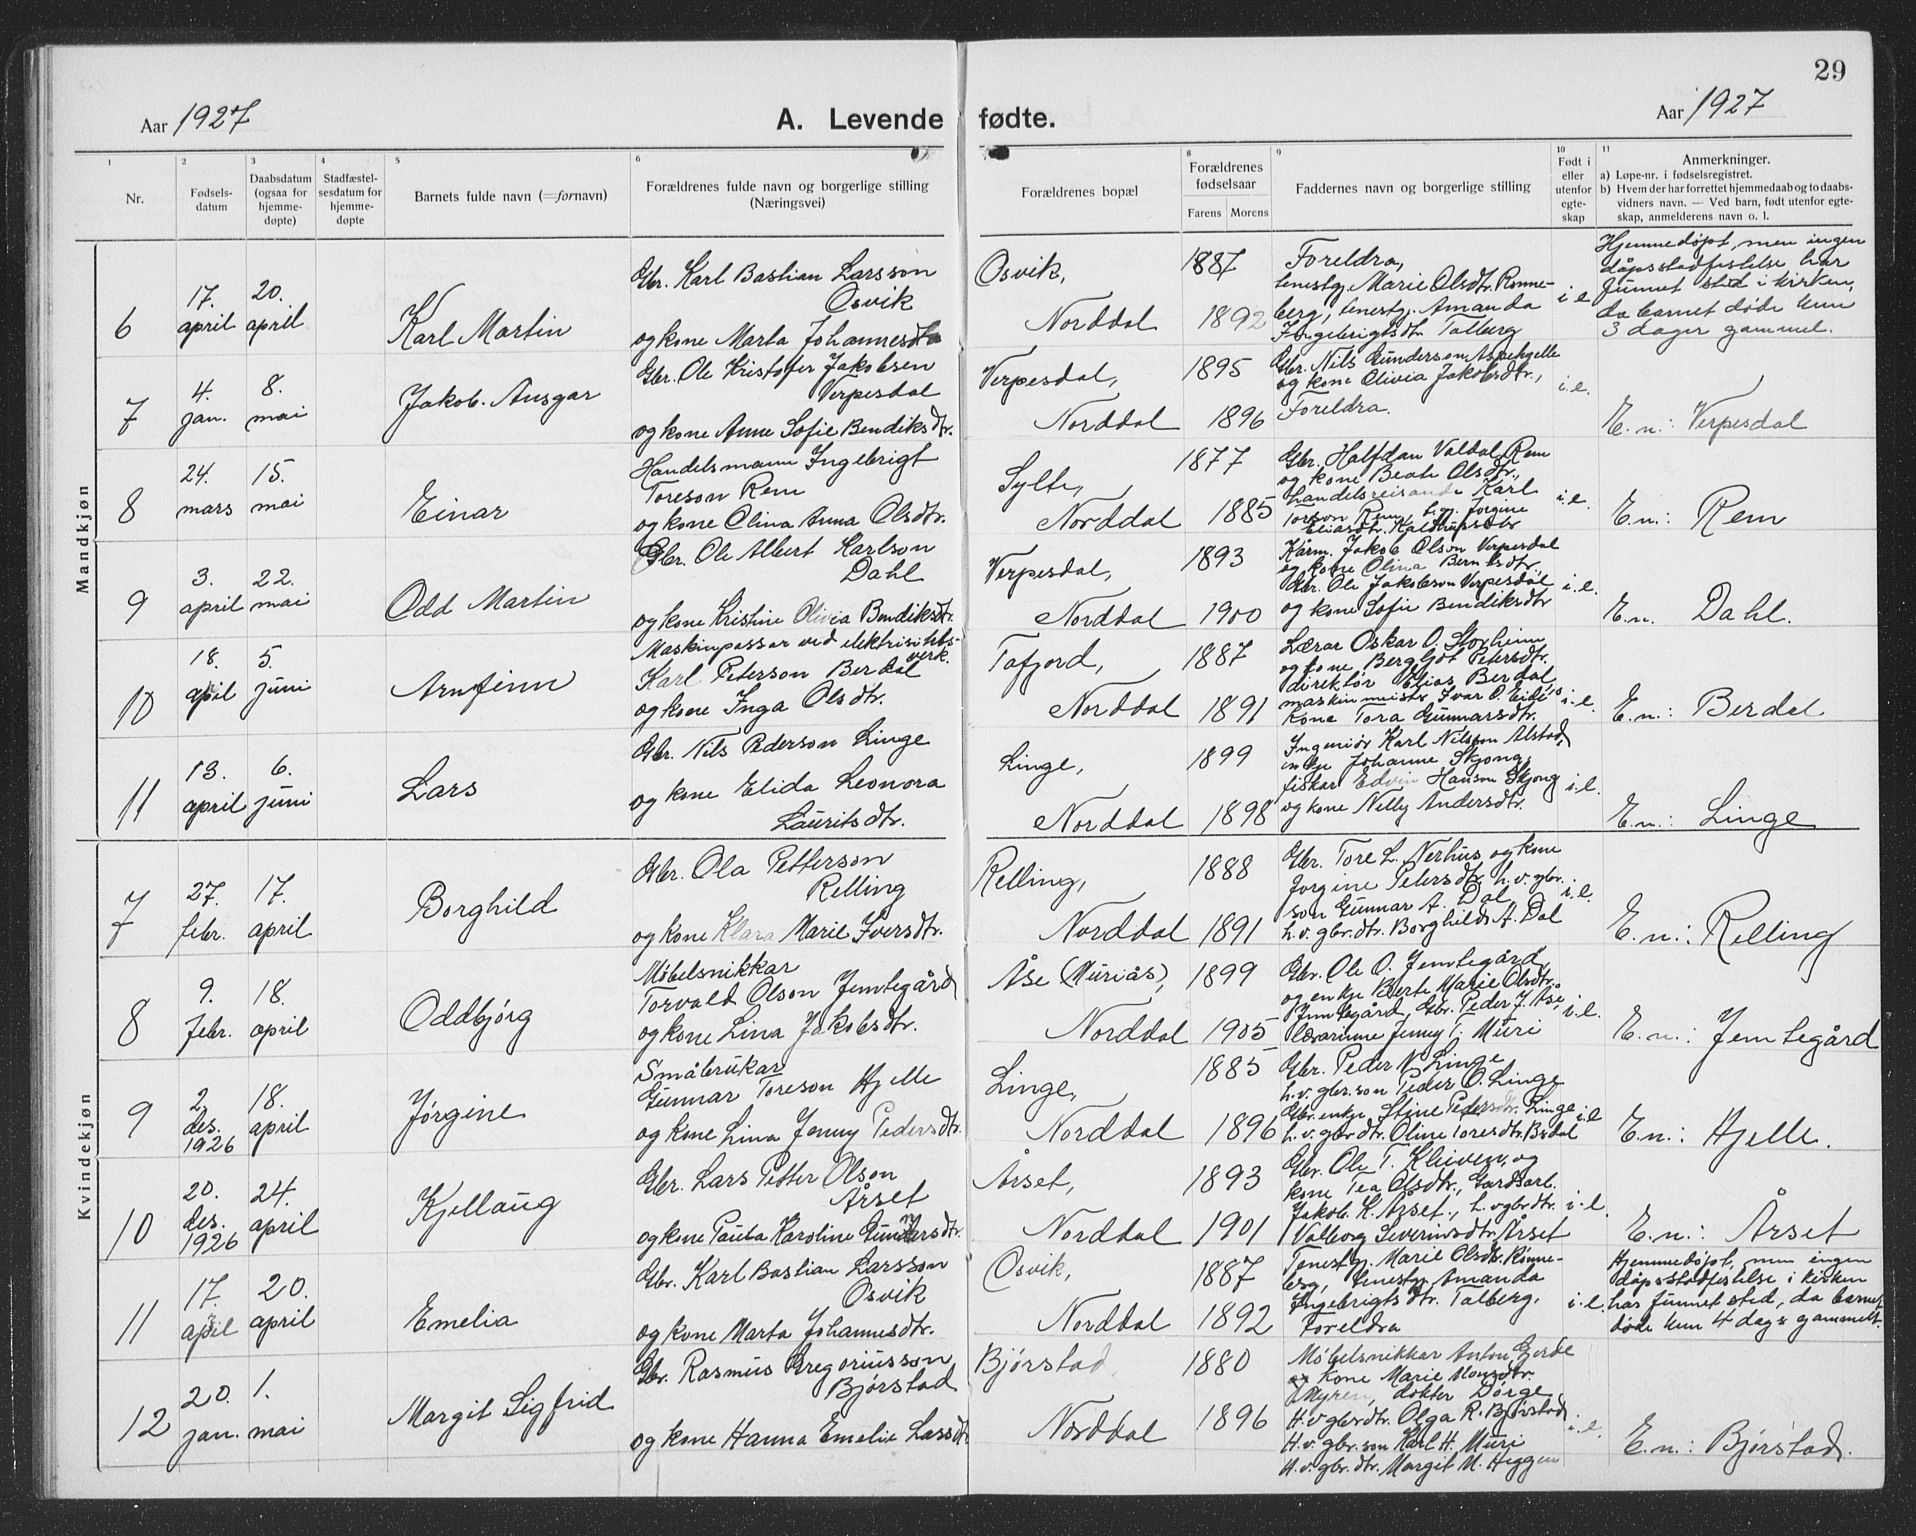 29
Aar 1927
A. Levende fødte.
Aar 1927
1
Nr.
2
Fødsels-
datum
3
Daabsdatum
(ogsaa for
hjemme-
døpte)
4
Stadfæstel-
sesdatum for
hjemme-
døpte
5
Barnets fulde navn (=fornavn)
6
Forældrenes fulde navn og borgerlige stilling
(Næringsvei)
Forældrenes bopæl
8
Forældrenes
fødselsaar
Farens Morens
9
Faddernes navn og borgerlige stilling
10
Født i
eller
utenfor
egte-
skap
11
Anmerkninger.
a) Løpe-nr. i fødselsregistret.
b) Hvem der har forrettet hjemmedaab og to daabs-
vidners navn. — Ved barn, født utenfor egte-
skap, anmelderens navn o. l.
Mandkjøn
6
17.
april
20.
april
Karl Martin
Gbr. Karl Bastian Larsson
Osvik
og kone Marta Johannesdtr
Osvik,
Norddal
1887
1892
Foreldra,
tenestgj. Marie Olsdtr. Rønne-
berg, tenestgj. Amanda
Ingebrigtsdtr. Talberg
i e
Hjemmedøpt, men ingen
dåpsstadfestelse har
funnet sted i kirken,
da barnet døde kun
3 dager gammel.
7
4.
jan.
8.
mai
Jakob Ansgar
Gbr. Ole Kristofer Jakobsen
Verpesdal
og kone Anne Sofie Bendiksdtr.
Verpesdal,
Norddal
1895
1896
Gbr. Nils Gunderson Aspehjelle
og kone Olivia Jakobsdtr.,
Foreldra.
i.e.
E.n.: Verpesdal
8
24.
mars
15.
mai
Einar
Handelsmann Ingebrigt
Toreson Rem
og kone Olina Anna Olsdtr.
Sylte,
Norddal
1877
1885
Gbr. Halfdan Valdal, Rem
og kone Beate Olsdtr.,
handelsreisande Karl
Torson Rem, Jørgine
Eliasdtr.
i.e.
E.n.: Rem
9
3.
april
22.
mai
Odd Martin
Gbr. Ole Albert Karlson
Dahl
og kone Kristine Olivia Bendiksdtr.
Verpesdal,
Norddal
1893
1900
Kårm. Jakob Olson Verpesdal
og kone Olina Berntsdtr.
Gbr. Ole Jakobson Verpesdal
og kone Sofie Bendiksdtr
i.e.
E.n. Dahl.
10
18.
april
5.
juni
Arnfinn
Maskinpassar ved elektrisitets-
verk.
Karl Peterson Berdal
og kone Inga Olsdtr.
Tafjord,
Norddal
1887
1891
Lærar Oskar O. Storheim
og kone Bergljot Petersdtr.
direktør Elias Berdal,
maskinmister Ivar O. Eide og
kone Tora Gunnarsdtr.
i.e.
E.n.: Berdal
11
13.
april
6.
juni
Lars
Gbr. Nils Pederson Linge
og kone Elida Leonora
Lauritsdtr.
Linge,
Norddal
1899
1898
Ingeniør Karl Nilsson Alstad,
enkje Johanne Skjong,
fiskar Edvin Hanson Skjong
og kone Nelly Andersdtr.
i.e.
E.n.: Linge
Kvindekjøn
7
27.
febr.
17.
april
Borghild
Gbr. Ola Petterson
Relling
og kone Klara Marie Iversdtr.
Relling,
Norddal
1888
1891
Gbr. Tore L. Nerhus og kone
Jørgine Petersdtr. h.v. gbr.
son Gunnar A. Dal
h.v. gbr.dtr. Borghild A. Dal
i.e.
E.n.: Relling
8
9.
febr.
18.
april
Oddbjørg
Møbelsnikkar
Torvald Olson Jemtegård
og kone Lina Jakobsdtr.
Åse (Muriås),
Norddal
1899
1905
Gbr. Ole O. Jemtegård,
og enkje Berte Marie Olsdtr.
Jemtegård, Gbr. Peder J. Åse,
lærarinne Jenny T. Muri
i.e.
E.n.: Jemtegård
9
2.
des.
1926
18.
april
Jørgine
Småbrukar
Gunnar Toreson Hjelle
og kone Lina Jenny Pedersdtr.
Linge,
Norddal
1885
1896
Gbr. Peder N. Linge
h.v. gbr.son Peder O. Linge
Gbr. enkje Stine Pedersdtr. Linge
h.v. gbr.dtr. Oline Toresdtr.
i.e
E.n.: Hjelle.
10
20.
des.
1926
24.
april
Kjellaug
Gbr. Lars Petter Olson
Årset
og kone Paula Karoline
Årset,
Norddal
1893
1901
Gbr. Ole T. Kleiven, og
kone Tea Olsdtr., Gardsarb.
Jakob K. Årset., h.v gbrdtr.
Valborg Severinsdtr. Årset
i.e.
E.n.: Årset
11
17.
april
20.
april
Emelia
Gbr. Karl Bastian Larsson
Osvik
og kone Marta Johannesdtr.
Osvik,
Norddal
1887
1892
Tenestgj. Marie Olsdtr. Rønne-
berg, tenestgj. Amanda
Ingebrigtsdtr. Talberg,
Foreldra
i.e.
Hjemmedøpt, men ingen
dåpsstadfestelse i kirken
har funnet sted, da barnet
døde kun 4 dager gammelt.
12
20.
jan.
1.
mai
Margit Sigfrid
Gbr. Rasmus Gregoriusson
Bjørstad
og kone Hanna Emelie Larsdtr
Bjørstad
Norddal
1880
1896
Møbelsnikkar Anton Gjerde
og kone Marie Monsdtr.
Myren, dokter Dørge
H.v gbrdtr. Olga R. Bjørstad,
H.v. gbr.son Karl H. Muri
H.v. gbr.dtr. Margit M.
i.e.
E.n.: Bjørstad.